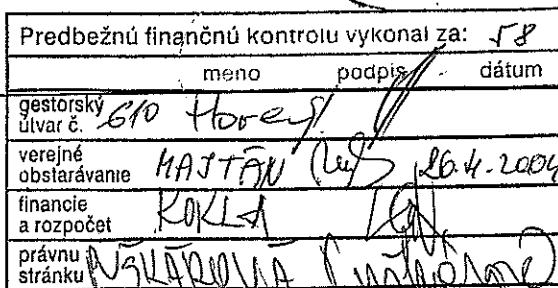 Predbežnú finančnú kontrolu vykonal za: 58
meno podpis dátum
gestorský
útvar č. 610
verejné
obstarávanie MAJTÁN 26.4.2004
financie
a rozpočet KOKLA
právnu
stránku